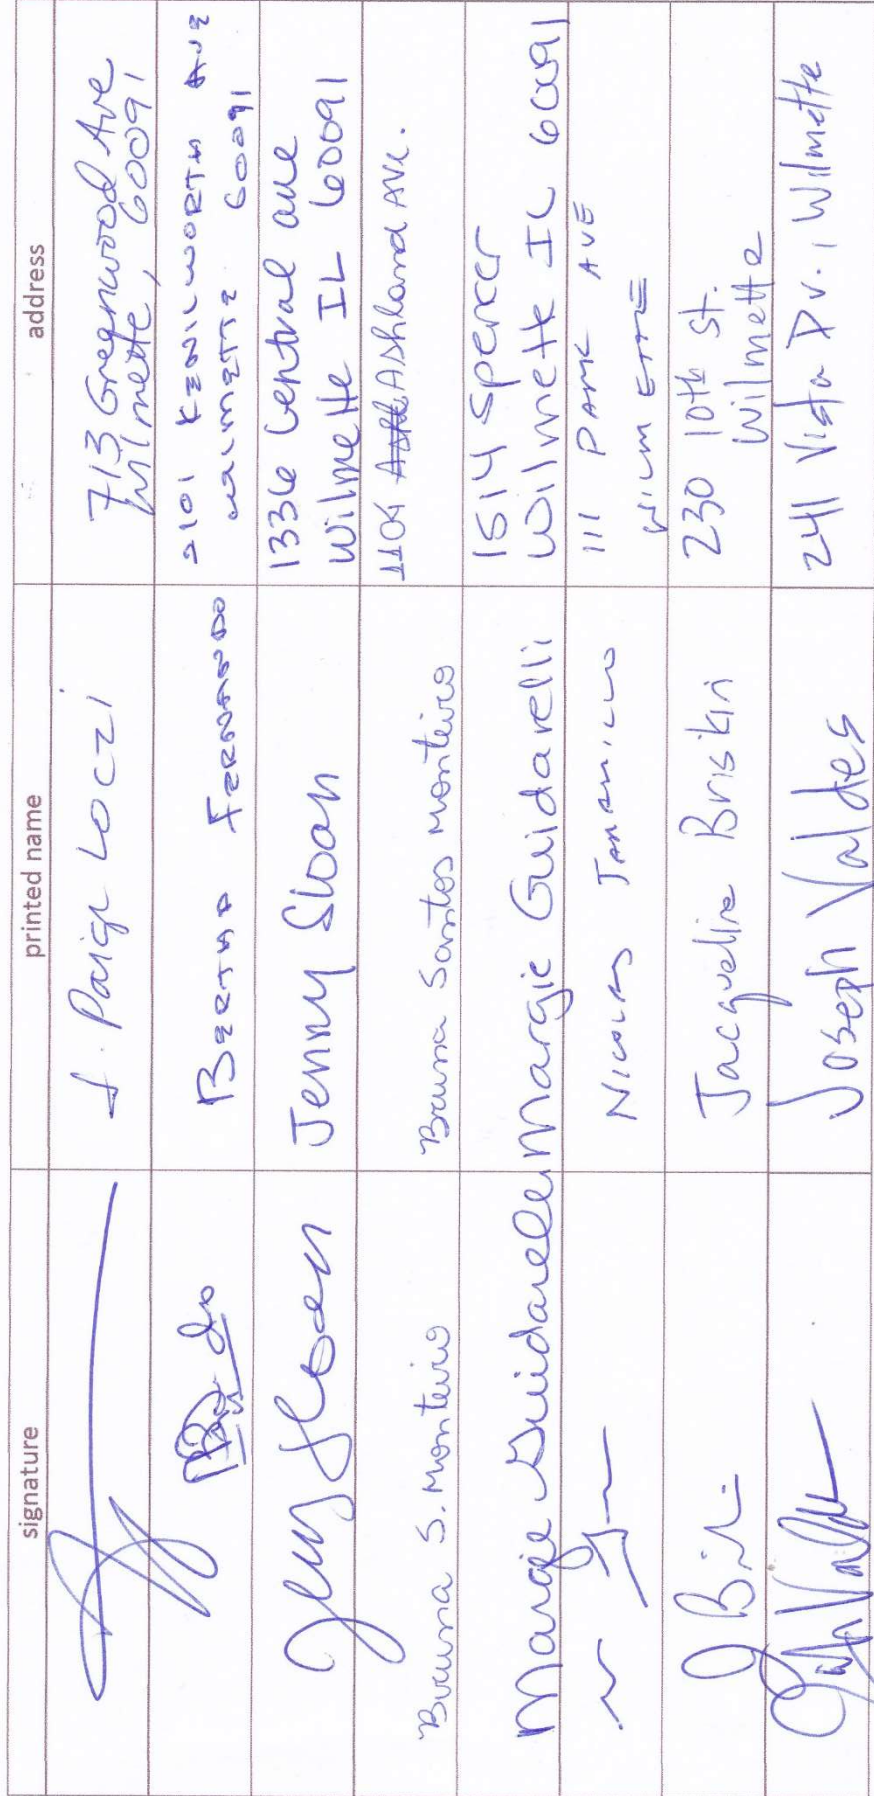 signature printed name address
L. Paige Loczi 713 Greenwood Ave
Wilmette, 60091
BERTHA FERNANDO 2101 KENILWORTH AVE
WILMETTE 60091
Jenny Sloan Jenny Sloan 1336 Central ave
Wilmette IL 60091
Bruna S. Monteiro Bruna Santos Monteiro 1104 Ashland Ave.
Margie Guidarelli Margie Guidarelli 1514 Spencer
Wilmette IL 60091
NICOLAS JARAMILLO 111 PARK AVE
WILMETTE
J Bri Jacqueline Briskin 230 10th St.
Wilmette
Joseph Valdes 241 Vista Dr., Wilmette